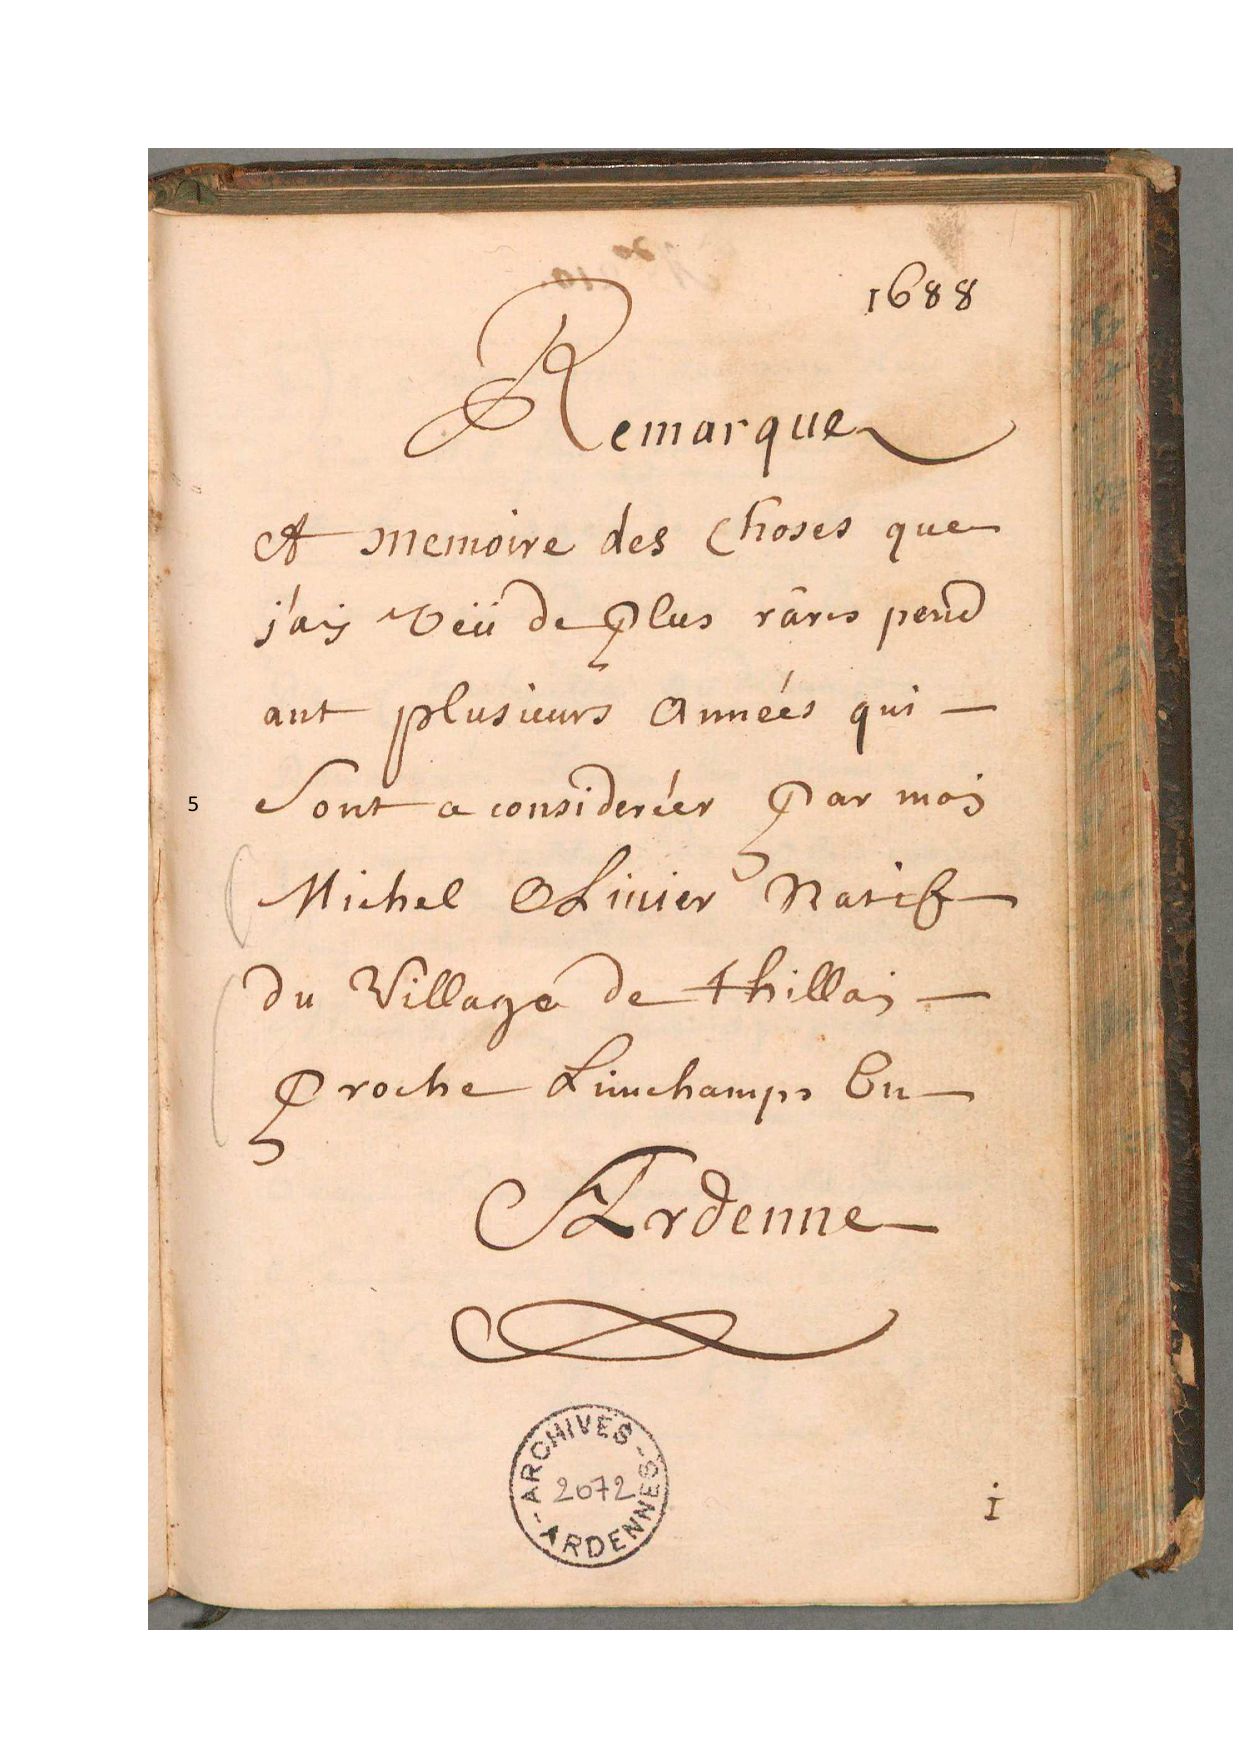 1688
Remarque
Et memoire des Choses que
j'aij veü de plus râres pend
ant plusieurs Années qui —
5 Sont a consideréer Par moij
Michel OLivier Natif
du Village de thillaij —
Proche Linchamps En
Ardenne
- ARCHIVES -
2672
ARDENNES
i